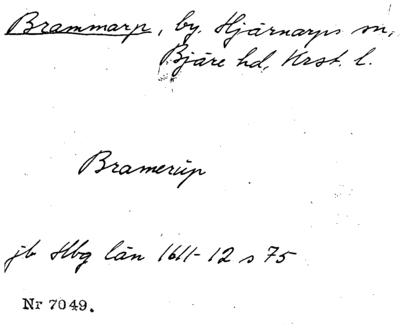 Brammarp, by. Hjärnarps sn,
Bjäre hd, Krst. l.
Bramerúp
jb Hbg län 1611-12 s 75
Nr 7049.